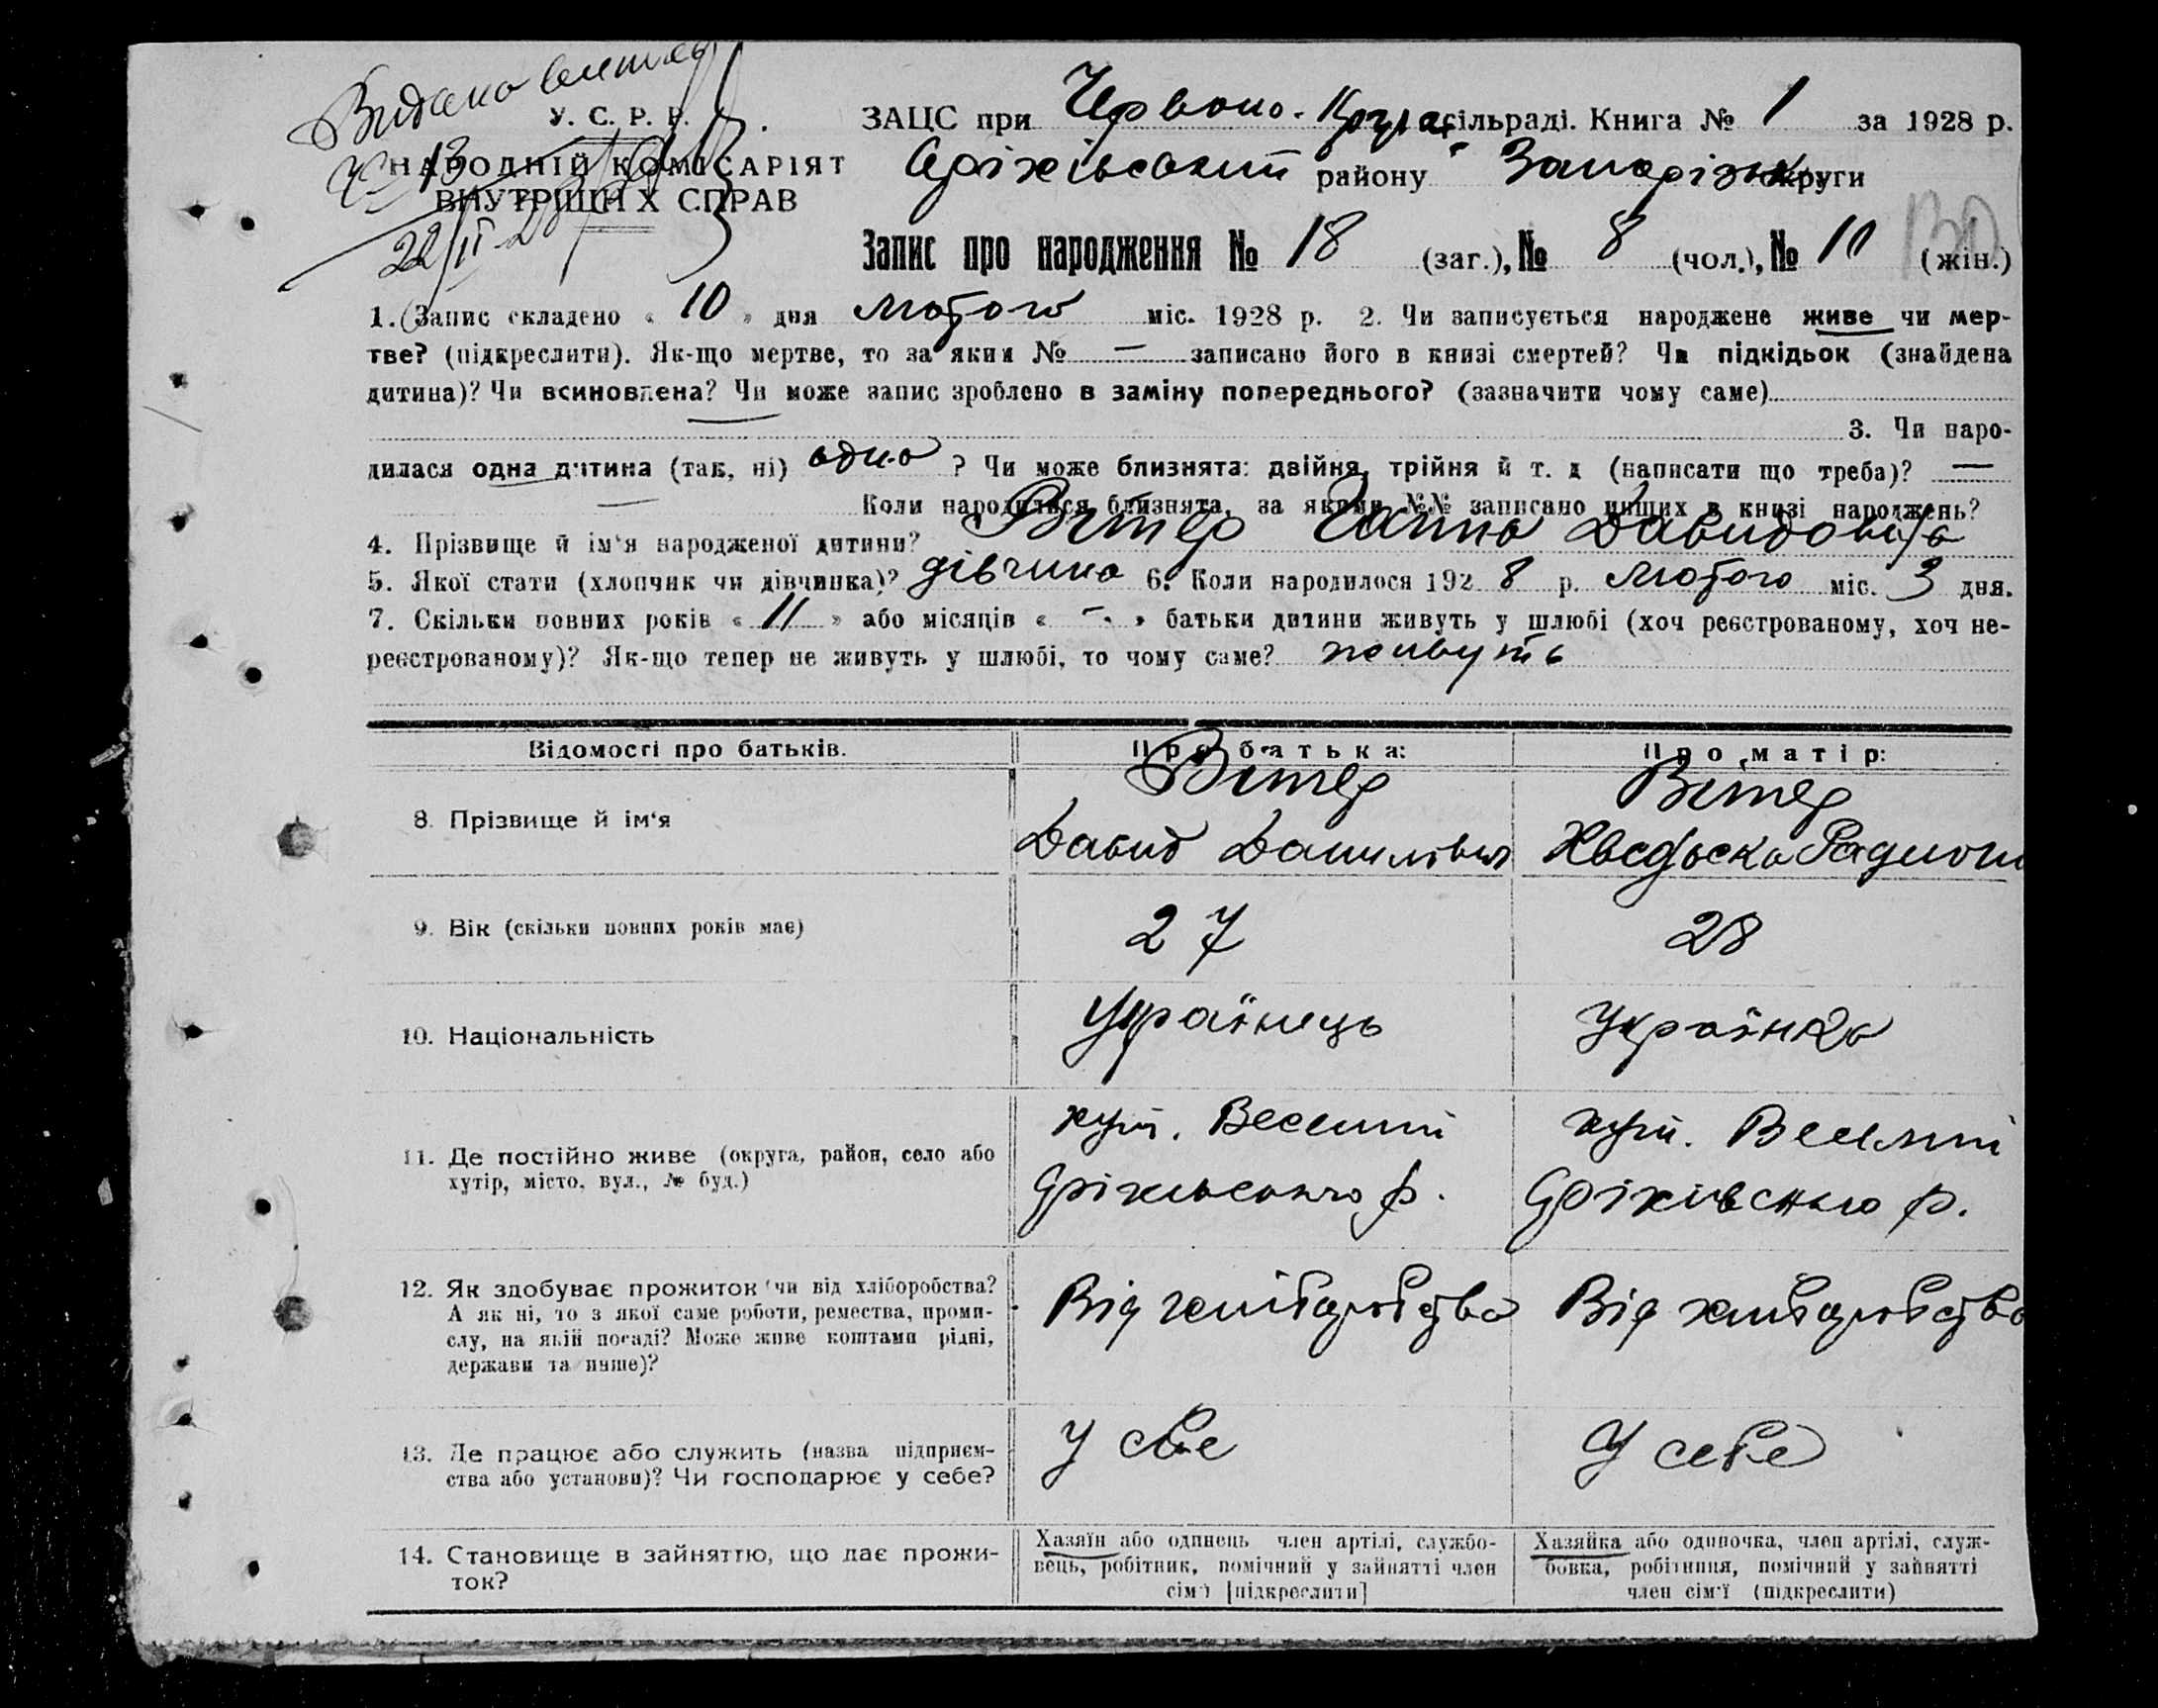 Видано витяг
У. С. Р. Р.
№ 13
НАРОДНІЙ КОМІСАРІЯТ
ВНУТРІШНІХ СПРАВ
22/II-28
ЗАЦС при Червоно- сільраді. Книга № 1 за 1928 р.
Оріхівський району Запорізьк округи
130
Запис про народження № 18 (заг.), № 8 (чол.), № 10 (жін.)
1. Запис складено « 10 » дня лютого міс. 1928 р. 2. Чи записується народжене живе чи мер-
тве? (підкреслити). Як-що мертве, то за яким № — записано його в книзі смертей? Чи підкідьок (знайдена
дитина)? Чи всиновлена? Чи може запис зроблено в заміну попереднього? (зазначити чому саме)
3. Чи наро-
дилася одна дитина (так, ні) одна ? Чи може близнята: двійня, трійня й т. д (написати що треба)? —
— Коли народилися близнята, за якими №№ записано инших в книзі народжень?
4. Прізвище й ім'я народженої дитини? Вітер Ганна Давидовна
5. Якої стати (хлопчик чи дівчинка)? дівчина 6. Коли народилося 192 8 р. Лютого міс. 3 дня.
7. Скільки повних років « 11 » або місяців « - » батьки дитини живуть у шлюбі (хоч реєстрованому, хоч не-
реєстрованому)? Як-що тепер не живуть у шлюбі, то чому саме? живуть
Відомості про батьків. Про батька: Про матір:
8. Прізвище й ім'я Вітер Вітер
Давид Данилович Хведоська Радион
9. Вік (скільки повних років має) 27 28
10. Національність Українець Українка
11. Де постійно живе (округа, район, село або
хутір, місто, вул., № буд.)
хут. Веселий хут. Веселий
Оріхівського р. Оріхівського р.
12. Як здобуває прожиток (чи від хліборобства?
А як ні, то з якої саме роботи, ремества, проми-
слу, на якій посаді? Може живе коштами рідні,
держави та инше)?
Від хліборобства Від хліборобства
13. Де працює або служить (назва підприєм-
ства або установи)? Чи господарює у себе?
У себе У себе
14. Становище в зайняттю, що дає прожи-
ток?
Хазяїн або одинець член артілі, службо-
вець, робітник, помічний у зайнятті член
сім'ї [підкреслити]
Хазяйка або одиночка, член артілі, служ-
бовка, робітниця, помічний у зайнятті
член сім'ї (підкреслити)